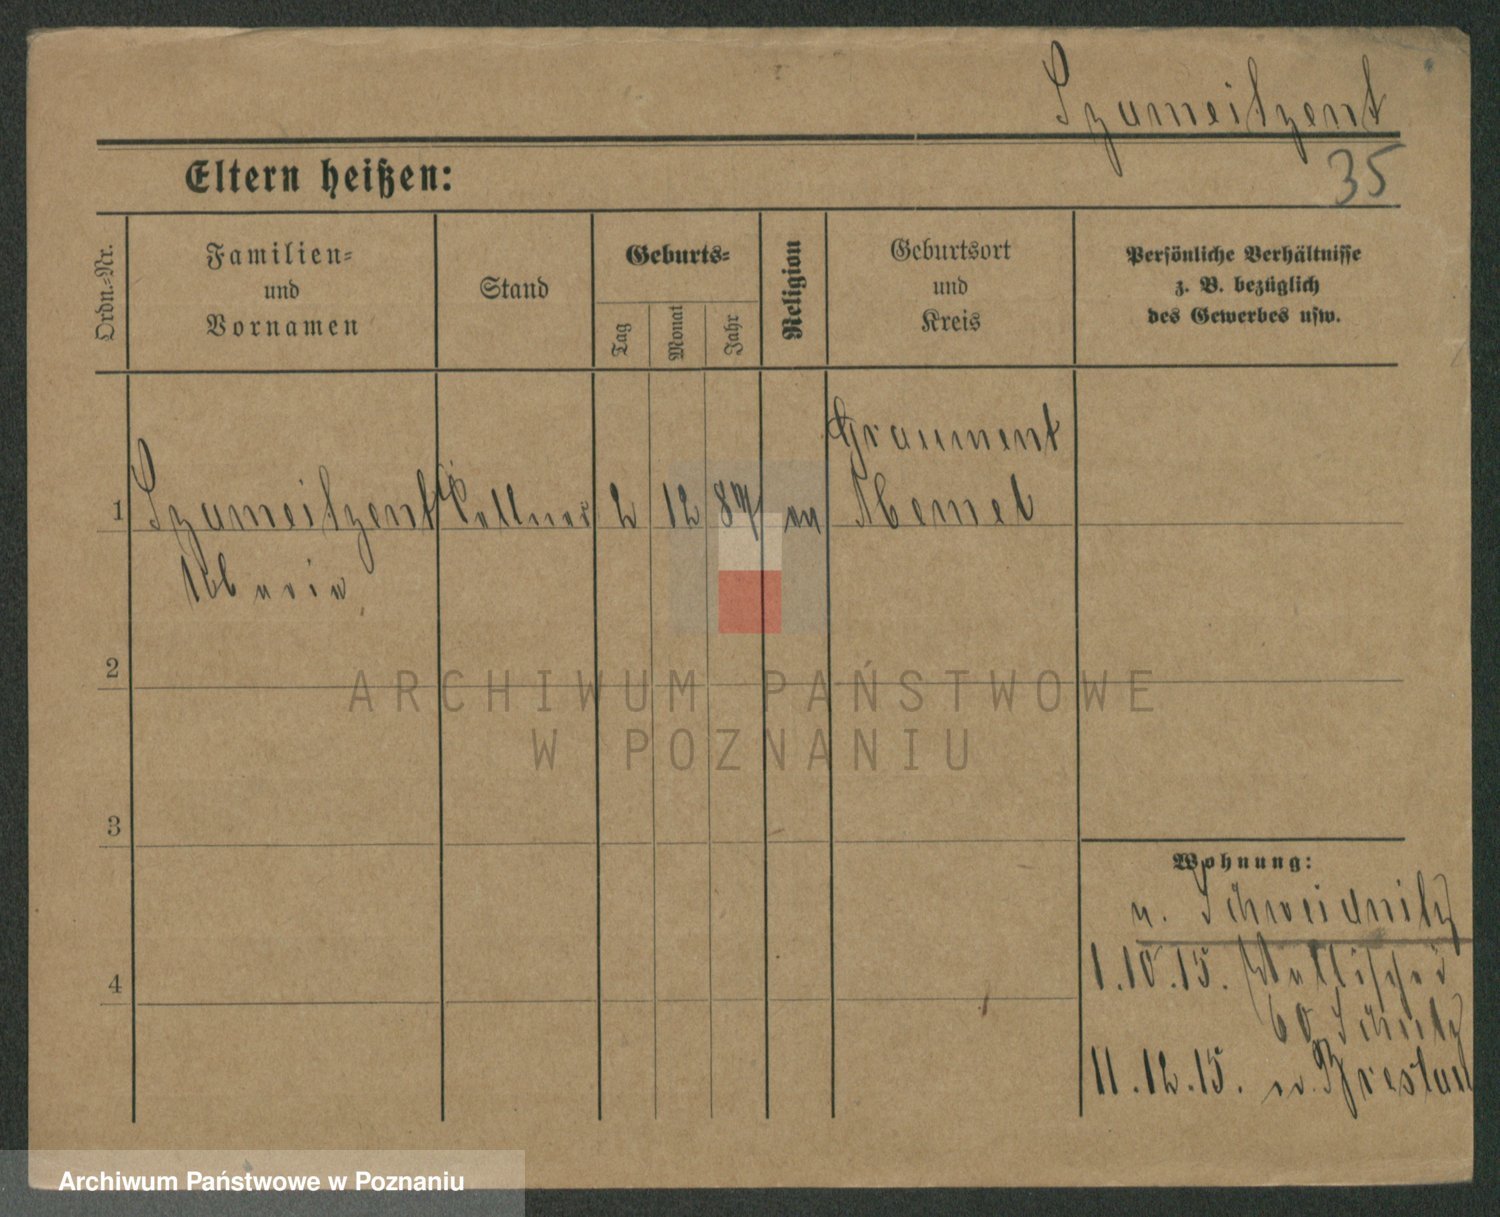 Szameitzent
35
Eltern heißen:
Ordn.-Nr.
Familien-
und
Vornamen
Stand
Geburts-
Tag
Monat
Jahr
Religion
Geburtsort
und
Kreis
Persönliche Verhältnisse
z. B. bezüglich
des Gewerbes usw.
Graument
1 Szameitzent 2 12 87 ev Memel
Maria
2
3
4
Wohnung:
n. Schweidnitz
1.10.15. Wallischei
60 Schulz
11.12.15. n. Breslau
ARCHIWUM PAŃSTWOWE
W POZNANIU
Archiwum Państwowe w Poznaniu